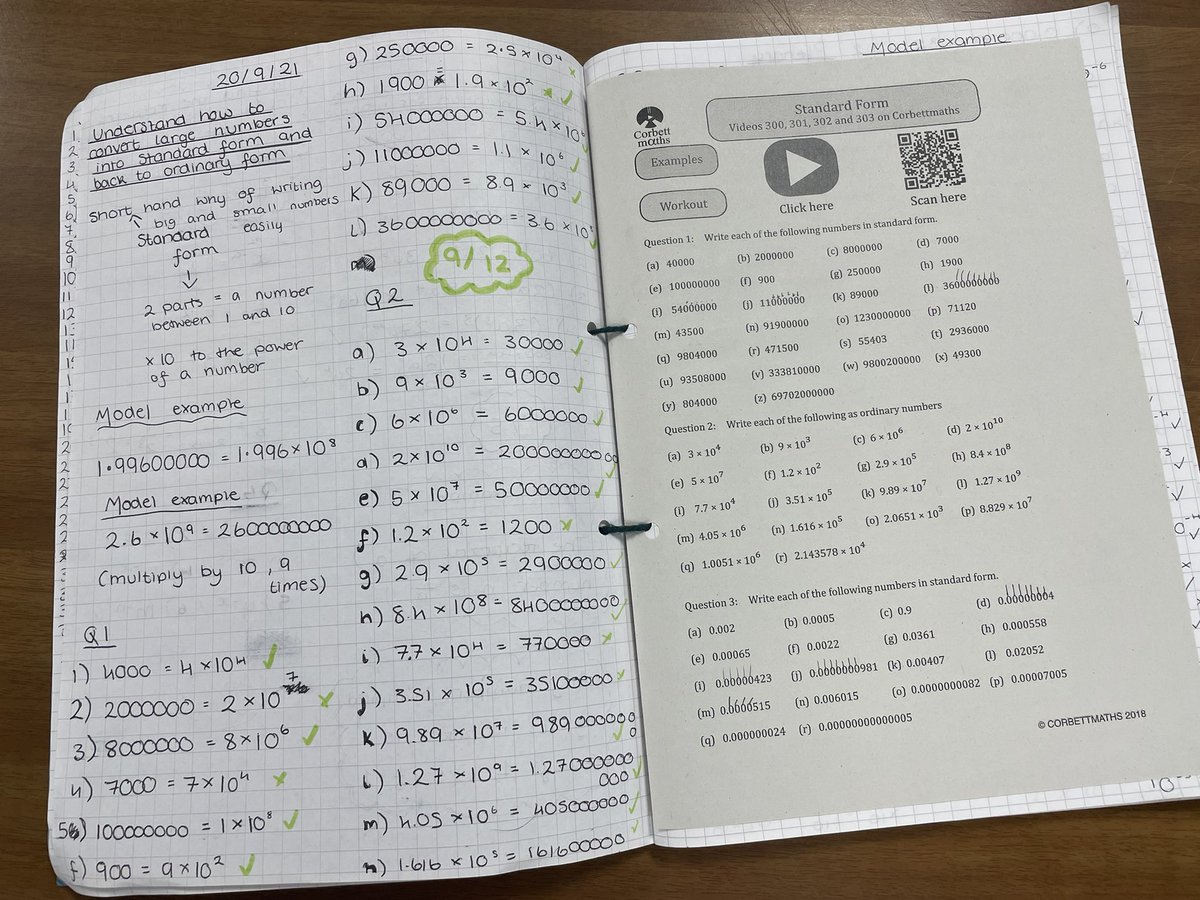 20/9/21
Understand how to
convert large numbers
into standard form and
back to ordinary form
short hand why of writing
big and small numbers
easily
Standard
form
2 parts = a number
between 1 and 10
x 10 to the power
of a number
Model example
1.99600000 = 1.996 × 10⁸
Model example
2.6 × 10⁹ = 2600000000
(multiply by 10, 9
times)
Q1
1) 4000 = 4 × 10⁴ ✓
2) 2000000 = 2 × 10⁷ ×
3) 8000000 = 8 × 10⁶ ✓
4) 7000 = 7 × 10⁴ ×
5) 100000000 = 1 × 10⁸ ✓
f) 900 = 9 × 10² ✓
g) 250000 = 2.5 × 10⁴ ×
h) 1900 = 1.9 × 10² ✓
i) 5400000 = 5.4 × 10⁶
j) 11000000 = 1.1 × 10⁶ ✓
k) 89000 = 8.9 × 10³ ✓
l) 3600000000 = 3.6 × 10
9/12
Q2
a) 3 × 104 = 30000 ✓
b) 9 × 10³ = 9000 ✓
c) 6 × 10⁶ = 6000000 ✓
d) 2 × 10¹⁰ = 20000000000
e) 5 × 10⁷ = 50000000 ✓
f) 1.2 × 10² = 1200 ×
g) 2.9 × 10⁵ = 2900000 ✓
h) 8.4 × 10⁸ = 840000000
i) 7.7 × 10⁴ = 770000 ×
j) 3.51 × 10⁵ = 35100000 ×
k) 9.89 × 10⁷ = 989000000
0
l) 1.27 × 10⁹ = 1.27000000
000
m) 4.05 × 10⁶ = 405000000
n) 1.616 × 10⁵ = 161600000
Model example
Corbett
maths
Standard Form
Videos 300, 301, 302 and 303 on Corbettmaths
Examples
Workout
Click here
Scan here
Question 1: Write each of the following numbers in standard form.
(a) 40000 (b) 2000000 (c) 8000000 (d) 7000
(e) 100000000 (f) 900 (g) 250000 (h) 1900
(i) 5400000 (j) 11000000 (k) 89000 (l) 3600000000
(m) 43500 (n) 91900000 (o) 1230000000 (p) 71120
(q) 9804000 (r) 471500 (s) 55403 (t) 2936000
(u) 93508000 (v) 333810000 (w) 9800200000 (x) 49300
(y) 804000 (z) 69702000000
Question 2: Write each of the following as ordinary numbers
(a) 3 × 10⁴ (b) 9 × 10³ (c) 6 × 10⁶ (d) 2 × 10¹⁰
(e) 5 × 10⁷ (f) 1.2 × 10² (g) 2.9 × 10⁵ (h) 8.4 × 10⁸
(i) 7.7 × 10⁴ (j) 3.51 × 10⁵ (k) 9.89 × 10⁷ (l) 1.27 × 10⁹
(m) 4.05 × 10⁶ (n) 1.616 × 10⁵ (o) 2.0651 × 10³ (p) 8.829 × 10⁷
(q) 1.0051 × 10⁶ (r) 2.143578 × 10⁴
Question 3: Write each of the following numbers in standard form.
(a) 0.002 (b) 0.0005 (c) 0.9 (d) 0.00000004
(e) 0.00065 (f) 0.0022 (g) 0.0361 (h) 0.000558
(i) 0.00000423 (j) 0.0000000981 (k) 0.00407 (l) 0.02052
(m) 0.0000515 (n) 0.006015 (o) 0.0000000082 (p) 0.00007005
(q) 0.000000024 (r) 0.00000000000005
© CORBETTMATHS 2018